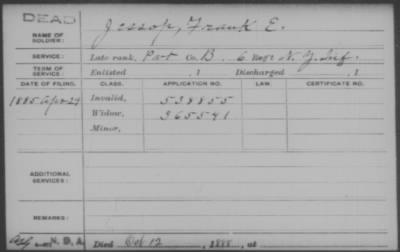 DEAD
NAME OF SOLDIER: Jessop, Frank E.
SERVICE: Late rank, Pvt Co. B. 6 Regt N. Y. Inf.
TERM OF SERVICE: Enlisted , 1 Discharged , 1
DATE OF FILING. CLASS. APPLICATION NO. LAW. CERTIFICATE NO.
1885 Apr 29 Invalid, 538855
Widow, 365541
Minor,
ADDITIONAL SERVICES:
REMARKS:
N. D. A. Died Oct 12, 1888, at